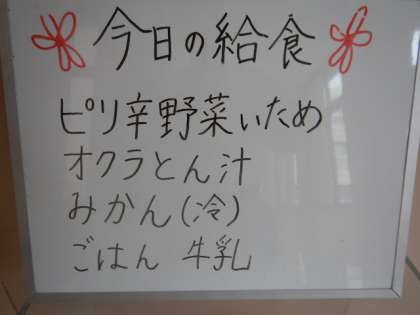 今日の給食
ピリ辛野菜いため
オクラとん汁
みかん(冷)
ごはん 牛乳